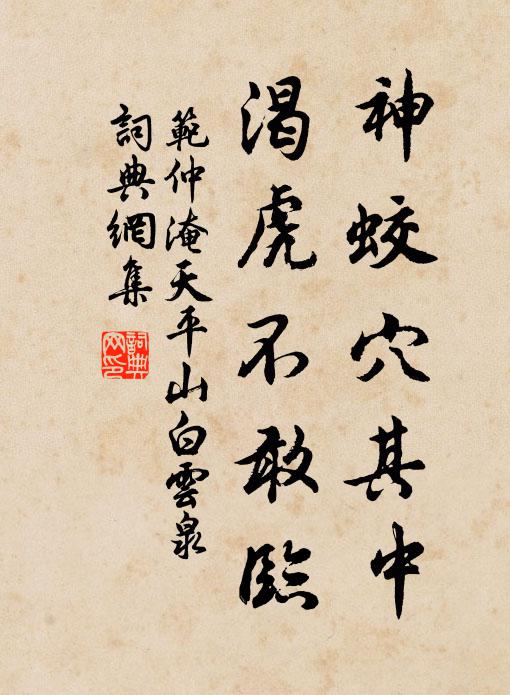 神蛟穴其中
渴虎不敢臨
範仲淹天平山白雲泉
詞典網集
詞典网印